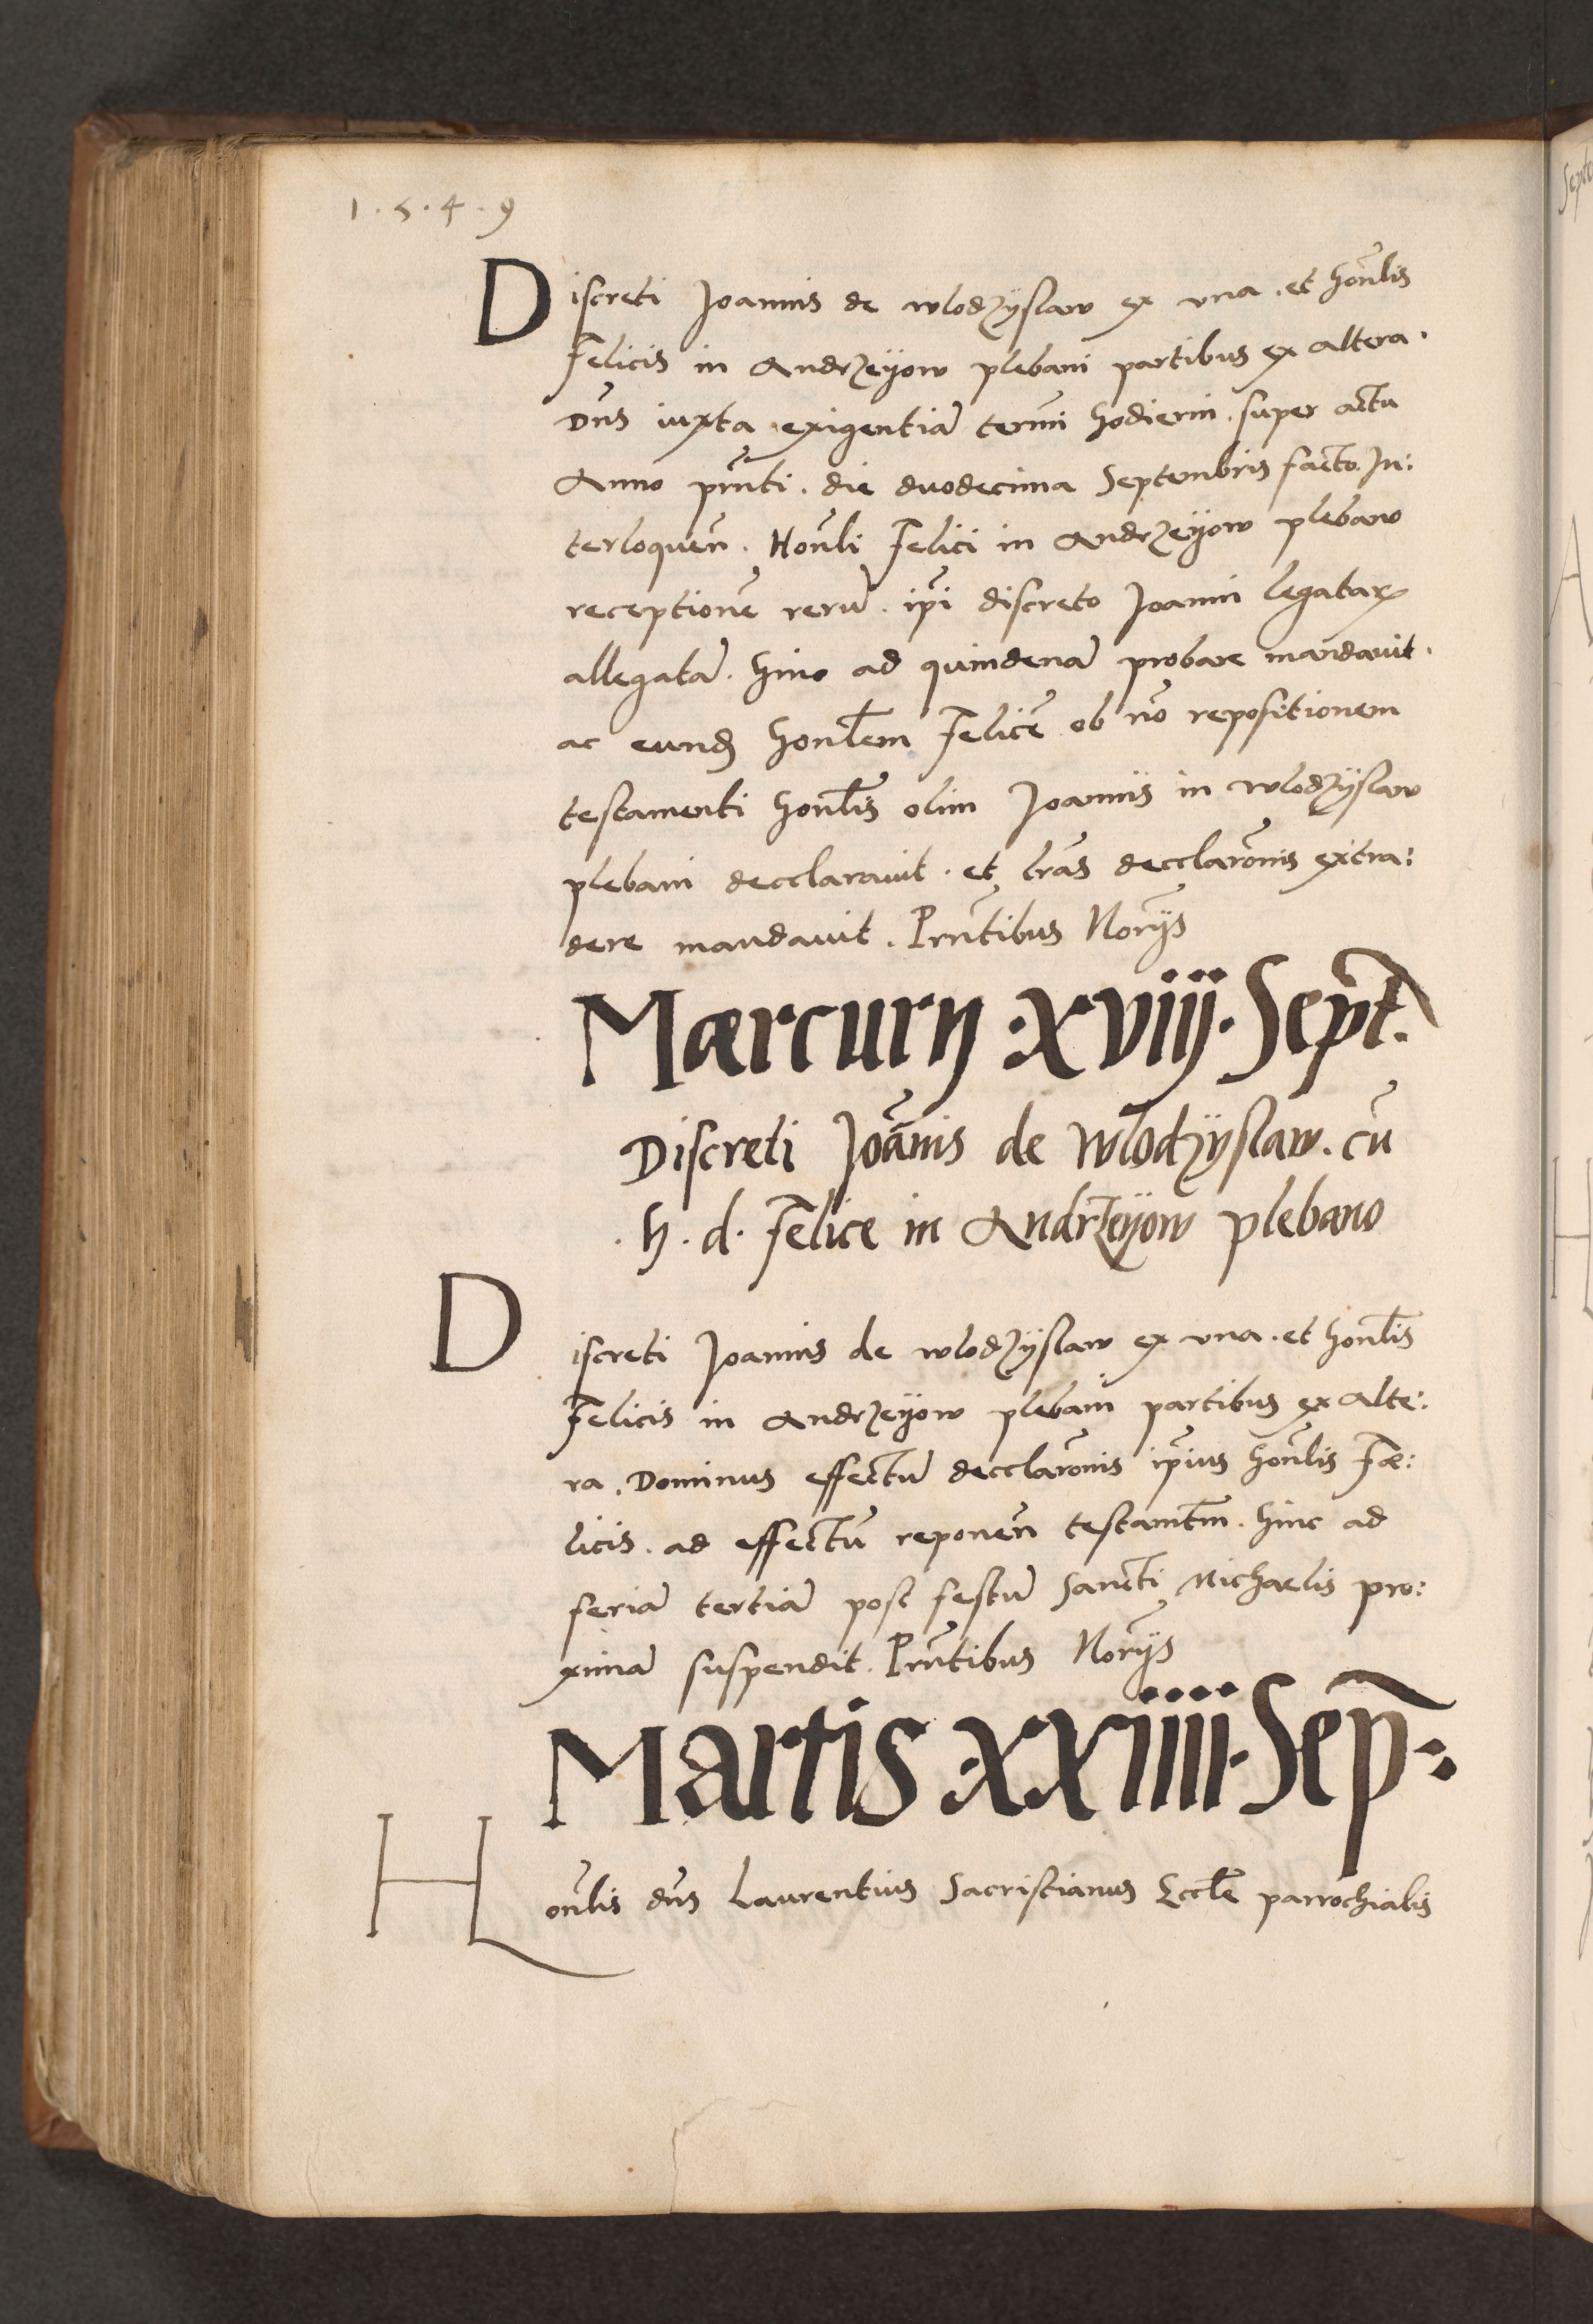 1.5.4.9
Discreti Joannis de wlodzÿslaw ex vna. et honĩlis
Felicis in Andrzeÿow plebani partibus ex altera.
Dñs iuxta exigentiã termĩ hodierni. super actu
Anno pñti. die duodecima Septembris facto. In:
terloqueñ. Honĩli Felici in Andrzeÿow plebano
receptionẽ rerũ. ipĩ discreto Joanni legatarꝝ
allegatã. hinc ad quindenã probare mandauit.
ac eundꝫ honĩlem Felicẽ ob nõ repositionem
testamenti honĩlis olim Joannis in wlodzÿslaw
plebani decclarauit. et lr̃as decclarõnis extra:
dere mandauit. Pñtibus Norÿs
Mercurij .xviij. Sept.
Discreti Joãnis de Wlodzÿslaw. cũ
.h. d. Felice in Andrzeÿow plebano
Discreti Joannis de wlodzÿslaw ex vna. et honĩlis
Felicis in Andrzeÿow plebani partibus ex alte:
ra. Dominus effectum decclarõnis ipĩus honĩlis Fæ:
licis. ad effectũ reponeñ testamtm̃. hinc ad
feriã tertiã post festũ Sancti Michaelis pro:
ximã suspendit. Pñtibus Norÿs
Martis xxiiii. Sep:
Honĩlis dñs Laurentius Sacristianus Eccl̃e parrochialis